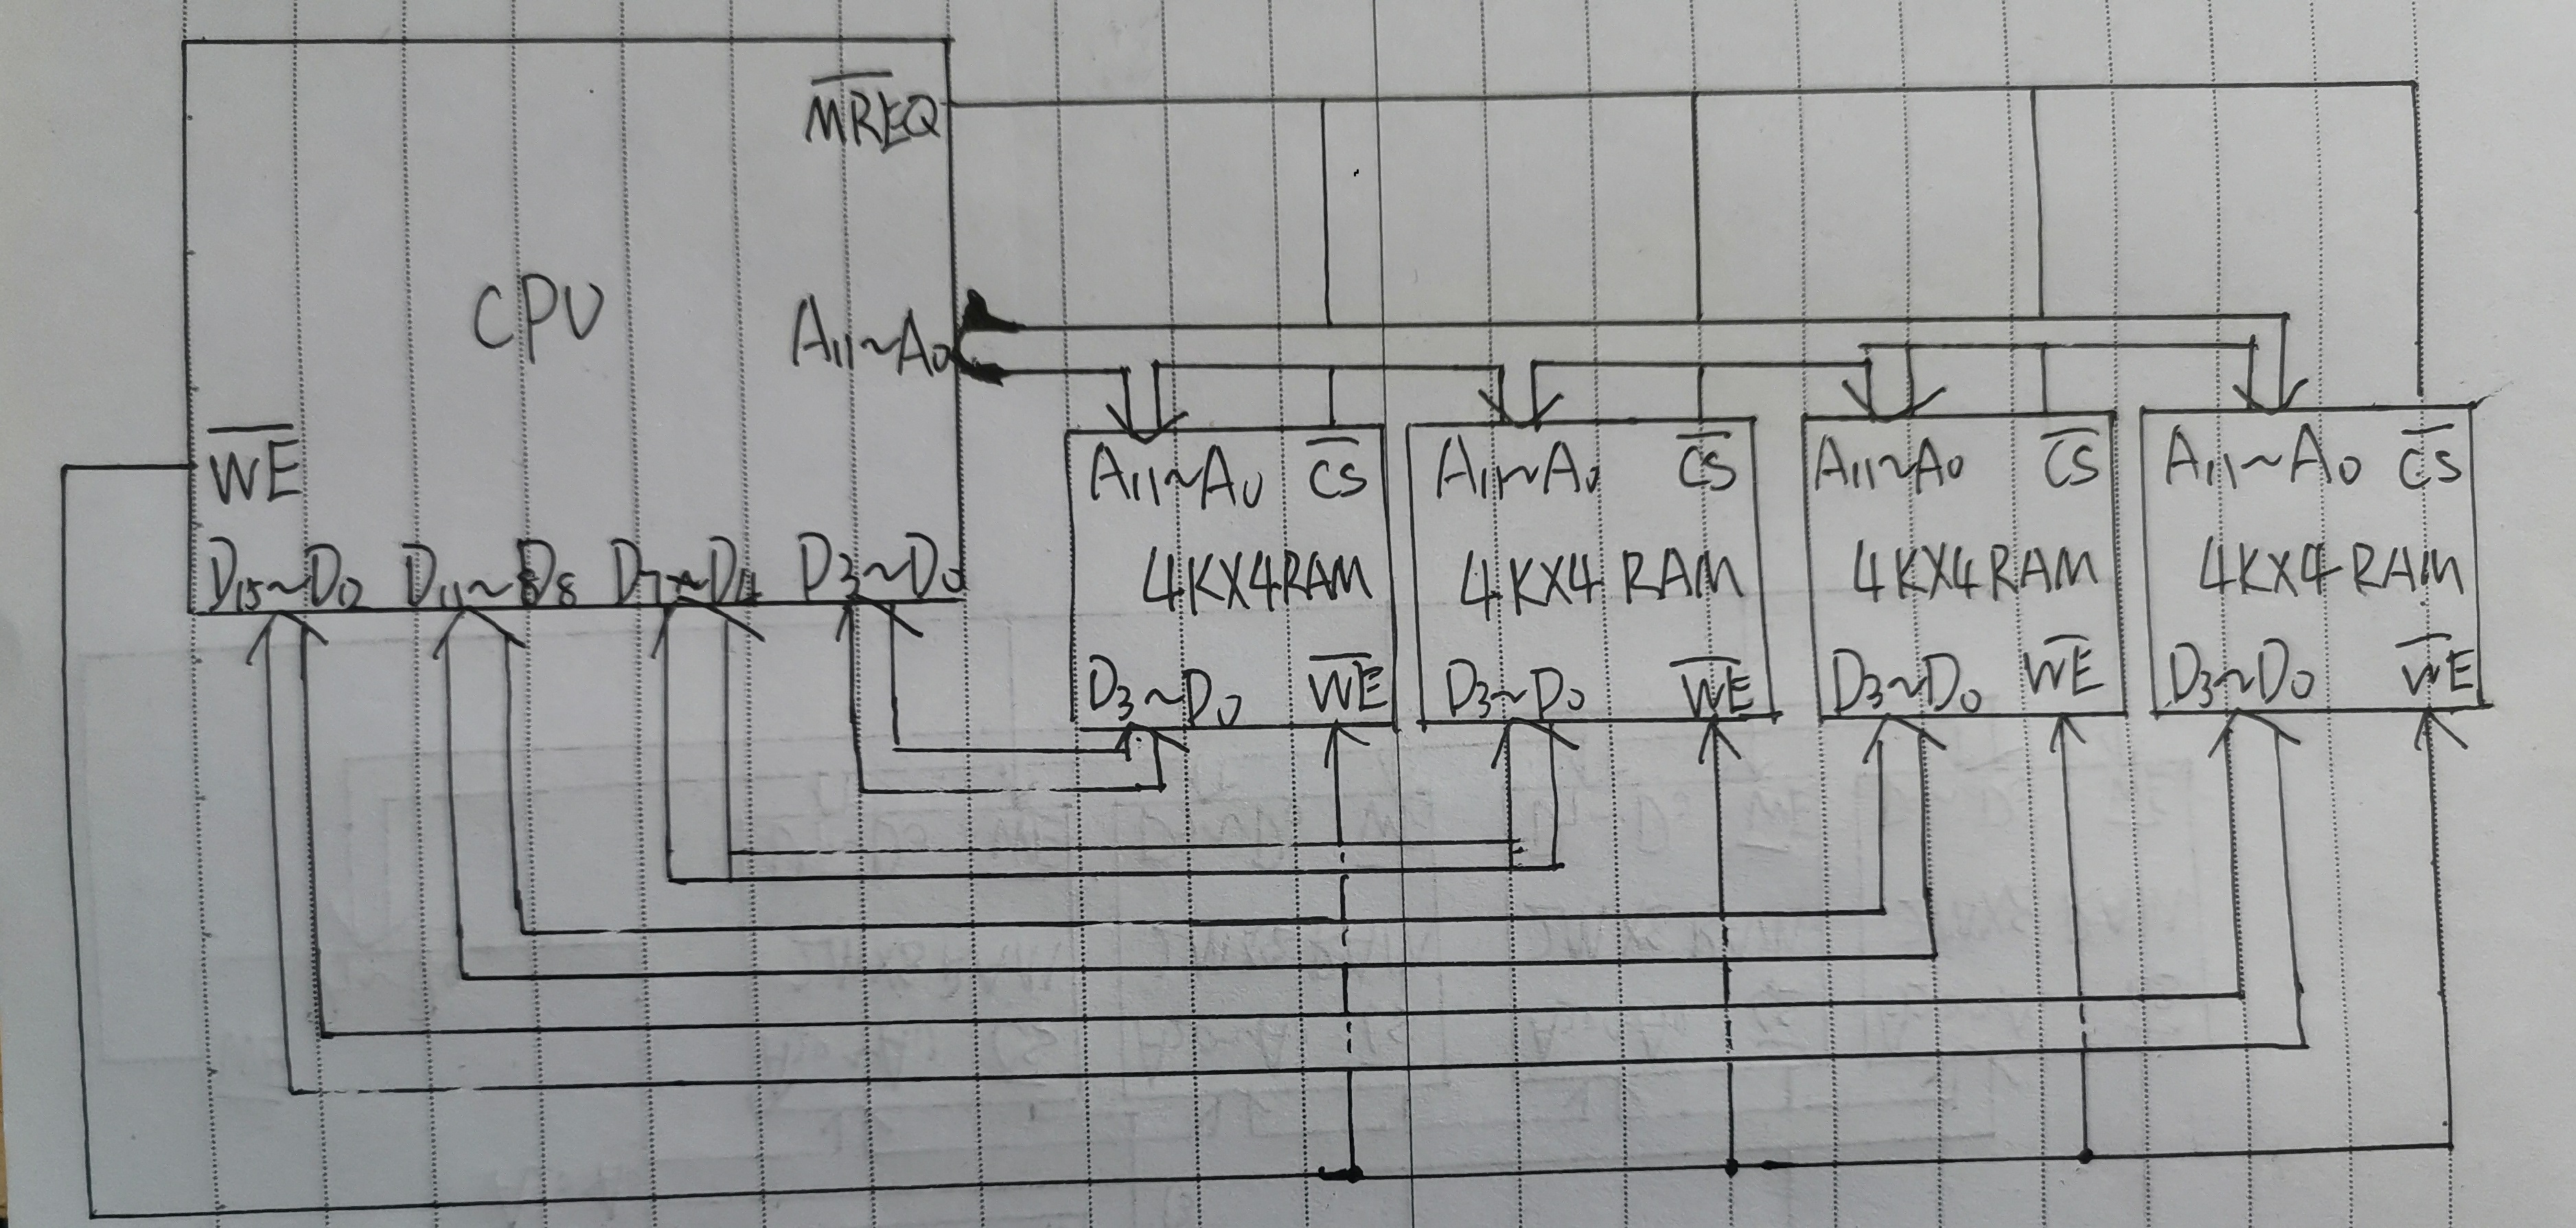 M̅R̅E̅Q̅
CPU
A₁₁~A₀
W̅E̅
D₁₅~D₀ D₁₁~D₈ D₇~D₄ D₃~D₀
A₁₁~A₀ C̅S̅
4K×4RAM
D₃~D₀ W̅E̅
A₁₁~A₀ C̅S̅
4K×4 RAM
D₃~D₀ W̅E̅
A₁₁~A₀ C̅S̅
4K×4RAM
D₃~D₀ W̅E̅
A₁₁~A₀ C̅S̅
4K×4 RAM
D₃~D₀ W̅E̅